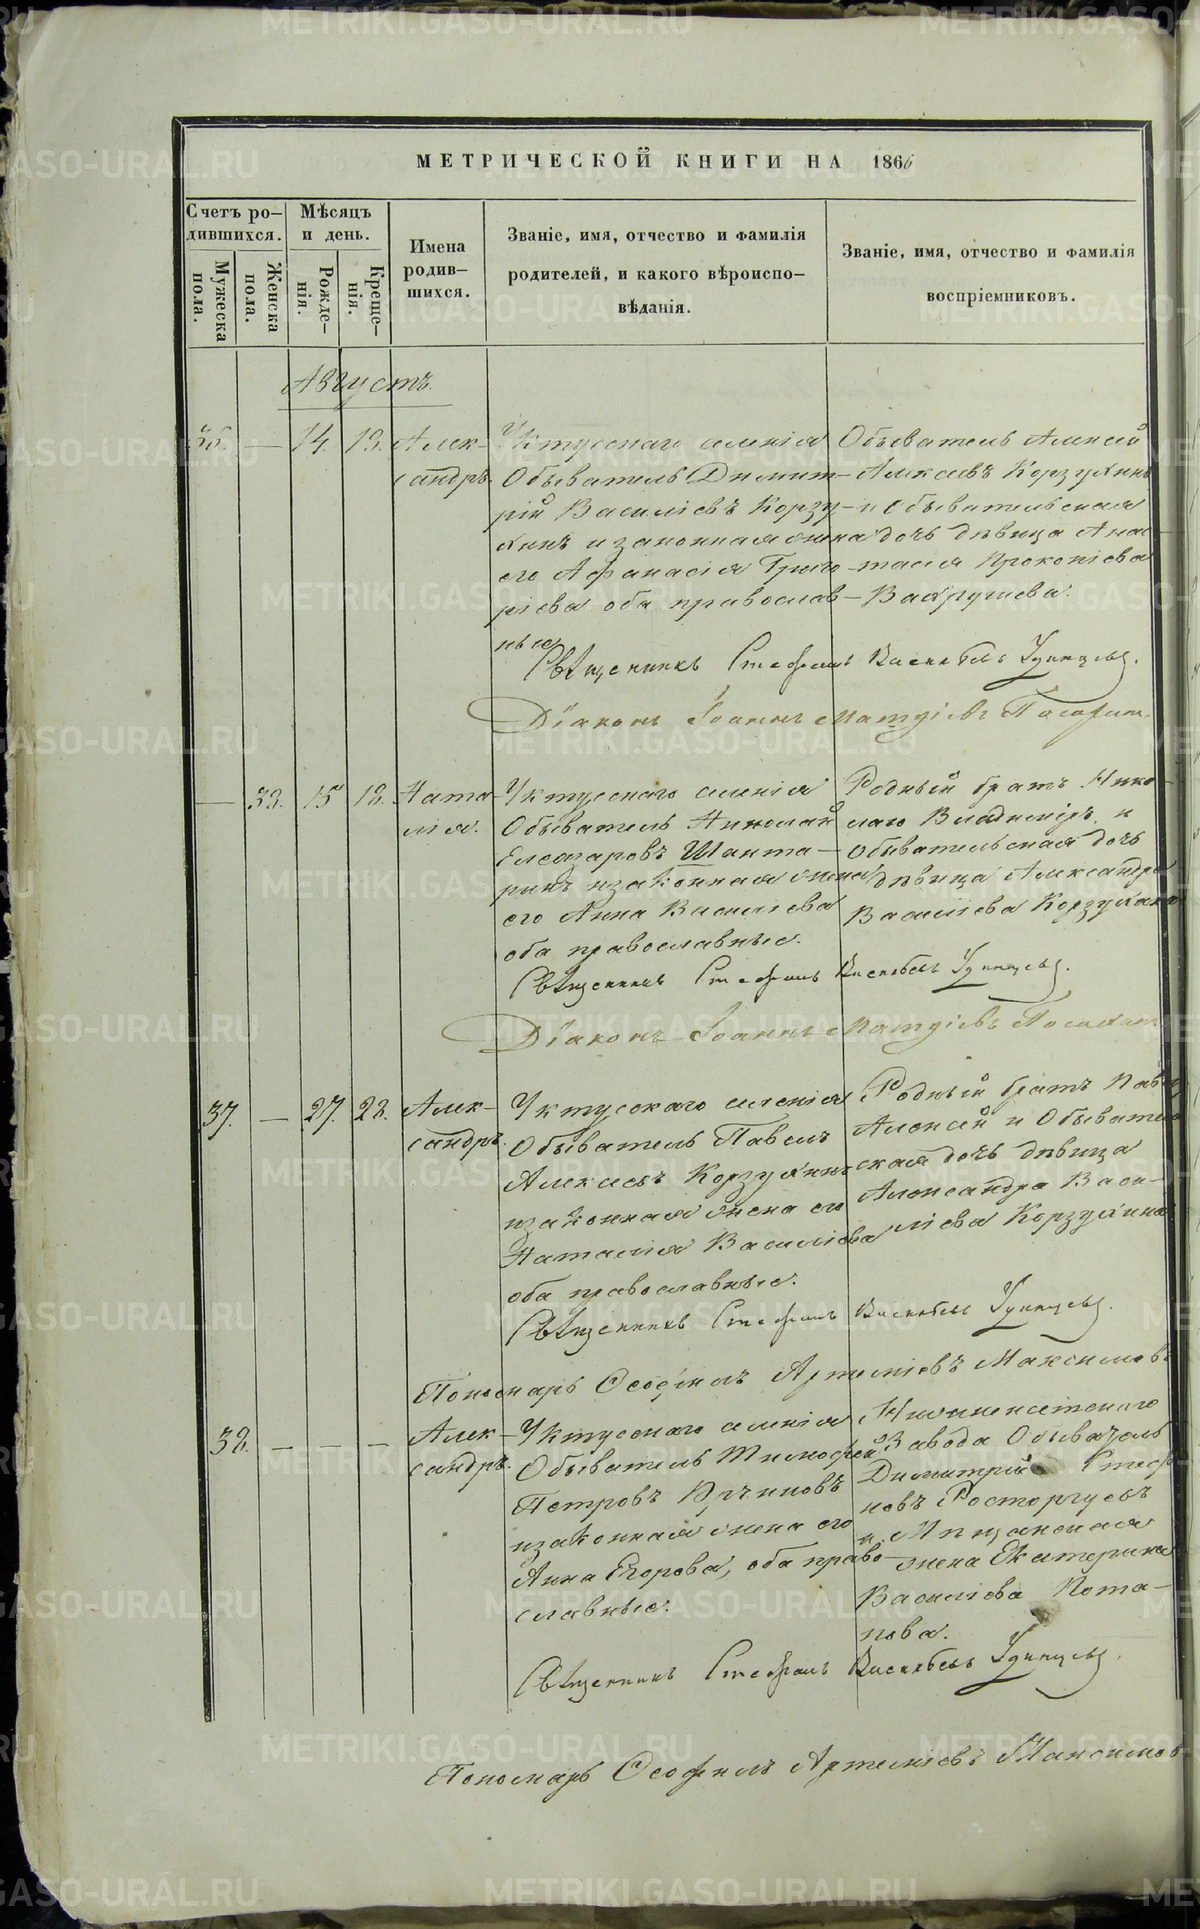 МЕТРИЧЕСКОЙ КНИГИ НА 1866
Счетъ ро-
дившихся.
Мужеска пола.
Женска пола.
Мѣсяцъ
и день.
Рожде-
нія.
Креще-
нія.
Имена
родив-
шихся.
Званіе, имя, отчество и фамилія
родителей, и какого вѣроиспо-
вѣданія.
Званіе, имя, отчество и фамилія
воспріемниковъ.
Августъ.
— 14.
Алек-
сандръ.
Уктусскаго селенія
Обыватель Димит-
рій Василіевъ Корзу-
хинъ и законная жена
его Афанасія Григо-
ріева оба православ-
ные
Обыватель Алексей
Алексеевъ Корзухинъ
и Обывательская
дочь дѣвица Анас-
тасія Прокопіева
Вахрушева.
Священникъ Стефанъ Удинцевъ.
Діаконъ Іоаннъ
— 15
Ната-
лія.
Уктусскаго селенія
Обыватель Николай
Елеазаровъ Шанта-
ринъ и законная жена
его Анна Василіева
оба православные.
Родный братъ Нико-
лаю Владиміръ, и
обывательская дочь
дѣвица Александра
Василіева Корзухина
Священникъ Стефанъ Удинцевъ.
Діаконъ Іоаннъ
37. — 27. 28.
Алек-
сандръ.
Уктусскаго селенія
Обыватель Павелъ
Алексеевъ Корзухинъ
и законная жена его
Наталія Василіева
оба православные.
Родный братъ
Алексей и Обыватель
ская дочь дѣвица
Александра Васи-
ліева Корзухина
Священникъ Стефанъ Удинцевъ.
Пономарь Ѳеофилъ Артеміевъ Максимовъ
38. — — —
Алек-
сандръ.
Уктусскаго селенія
Обыватель Тимофей
Петровъ
и законная жена его
Анна Егорова, оба право-
славные.
Нижнеисетскаго
Завода Обыватель
Димитрій Стефа
новъ Расторгуевъ
и Мѣщанская
жена Екатерина
Василіева Пота-
пова.
Священникъ Стефанъ Удинцевъ.
Пономарь Ѳеофилъ Артеміевъ Максимов
METRIKI.GASO-URAL.RU